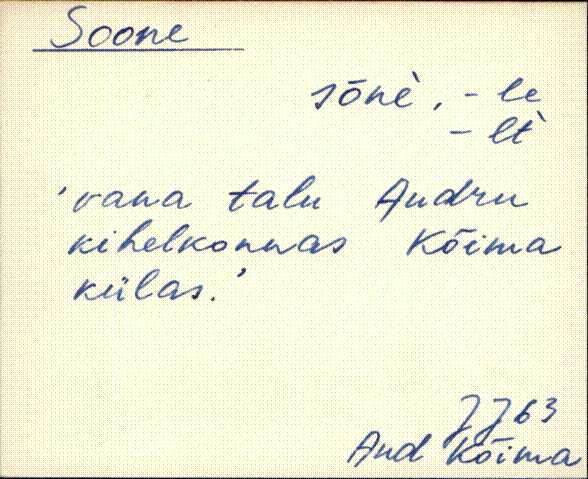 Soone
sōnè, -le
-lt̀
'vana talu Audru
kihelkonnas Kõima
külas.'
JJ 63
Aud Kõima